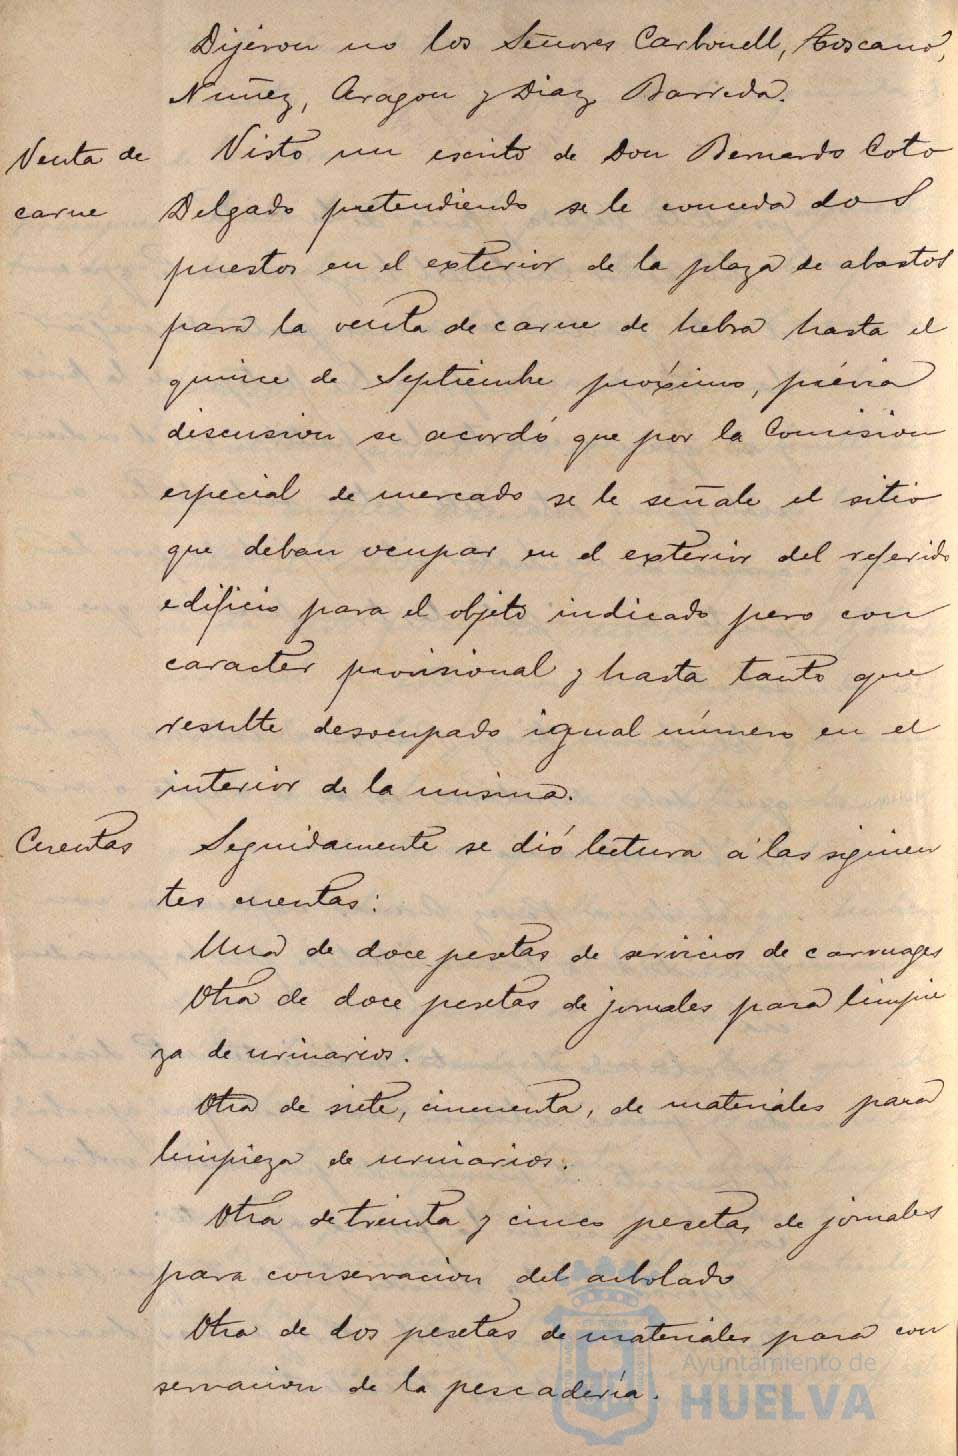 Dijeron no los Señores Carbonell, Toscano,
Nuñez, Aragon y Diaz Barreda.
Venta de
carne
Visto un escrito de Don Bernardo Coto
Delgado pretendiendo se le conceda dos
puestos en el exterior de la plaza de abastos
para la venta de carne de hebra hasta el
quince de Septiembre próximo, prévia
discusion se acordó que por la Comision
especial de mercado se le señale el sitio
que deban ocupar en el exterior del referido
edificio para el objeto indicado pero con
caracter provisional y hasta tanto que
resulte desocupado igual número en el
interior de la misma.
Cuentas
Seguidamente se dió lectura á las siguien
tes cuentas:
Una de doce pesetas de servicios de carruages
Otra de doce pesetas de jornales para limpie
za de urinarios.
Otra de siete, cincuenta, de materiales para
limpieza de urinarios.
Otra de treinta y cinco pesetas de jornales
para conservacion del arbolado
Otra de dos pesetas de materiales para con
servacion de la pescadería.
Ayuntamiento de
HUELVA